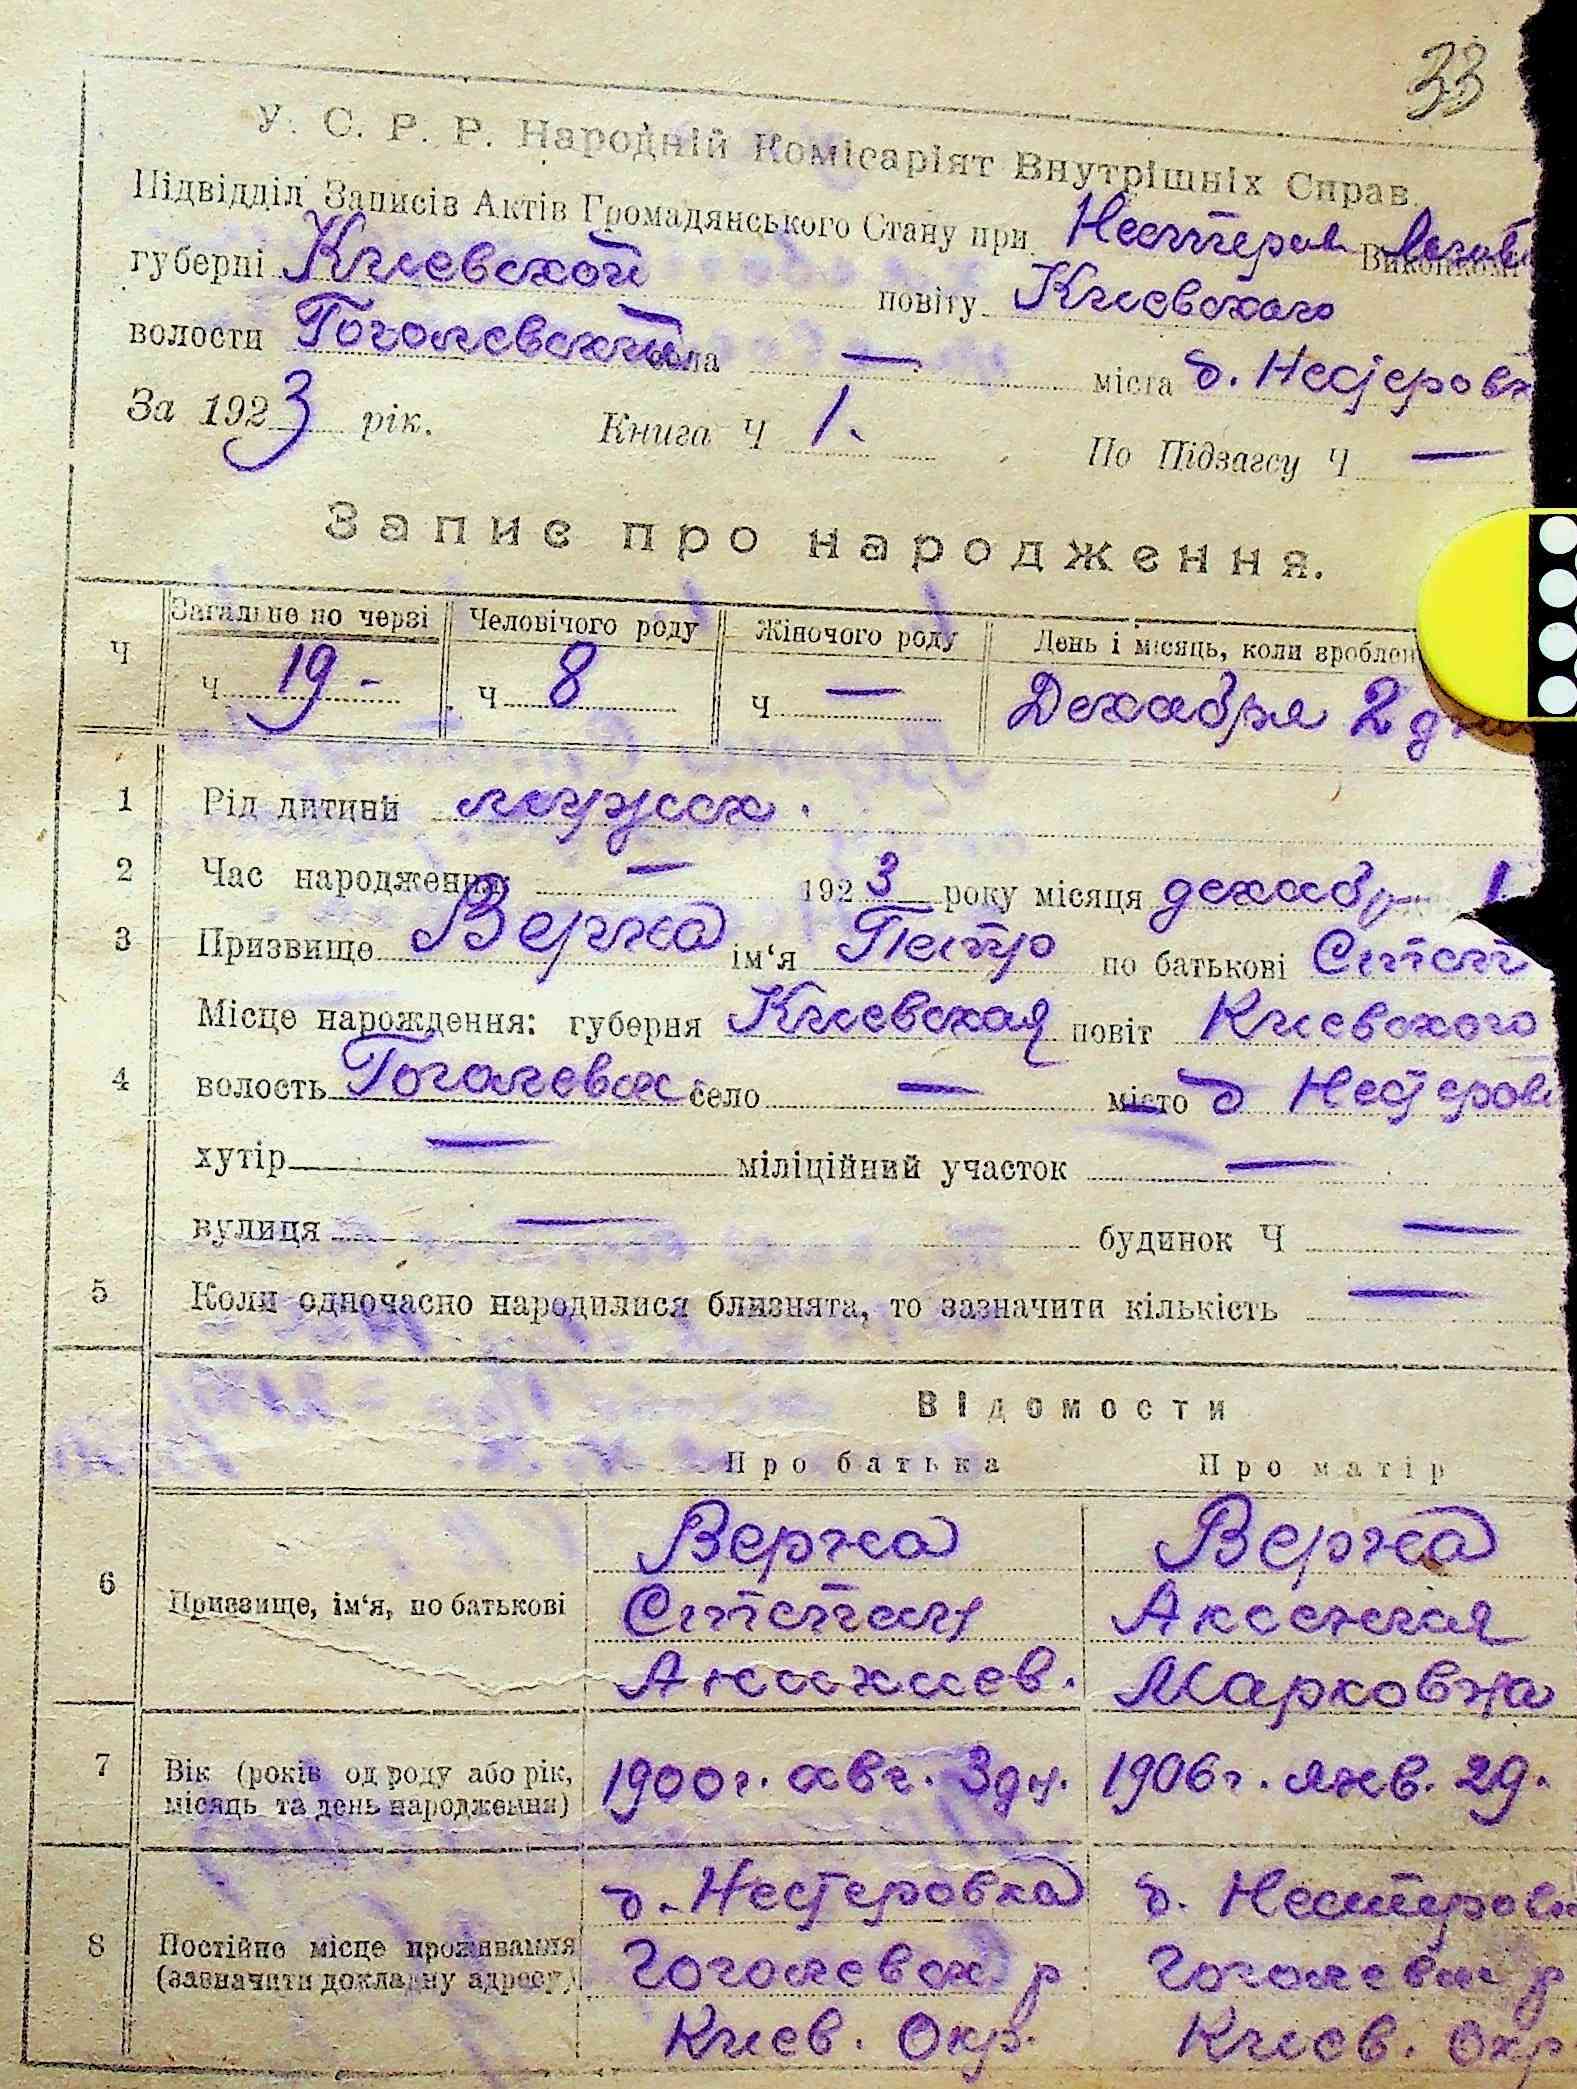 33
У. С. Р. Р. Народній Комісаріят Внутрішніх Справ.
Підвідділ Записів Актів Громадянського Стану при Нестеров
губерні Киевской повіту Киевского
волости Гоголевской села — міста д. Нестеровк
За 1923 рік. Книга Ч 1. По Підзагсу Ч —
Запис про народження.
Ч Загальне по черзі Человічого роду Жіночого роду День і місяць, коли зроблен
Ч 19 - Ч 8 Ч — Декабря 2 дня
1 Рід дитини мужск.
2 Час народження — 1923 року місяця декабр 1
3 Призвище Верна ім'я Петро по батькові Степ
Місце нарождення: губерня Киевская повіт Киевского
4 волость Гоголевск село — місто д Нестеров
хутір — міліційний участок —
вулиця — будинок Ч —
5 Коли одночасно народилися близнята, то зазначити кількість —
Відомости
Про батька Про матір
6 Призвище, ім'я, по батькові
Верна Верна
Степан Аксения
Марковна
7 Вік (років од роду або рік, місяць та день народження)
1900 г. авг. 3 дн. 1906 г. янв. 29.
8 Постійне місце проживання (зазначити докладну адресу)
д. Нестеровка д. Нестеров
Гоголевск р Гоголевск р
Киев. Окр. Киев. Окр